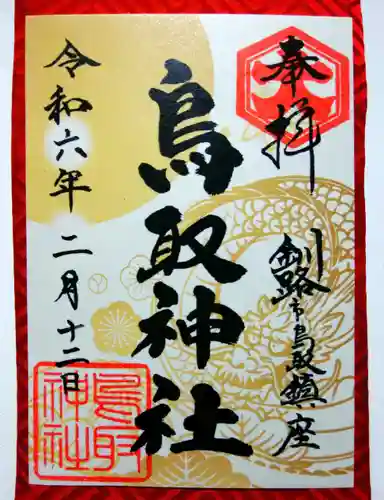 奉拝
釧路市鳥取鎮座
鳥取神社
令和六年二月十二日
鳥取
神社